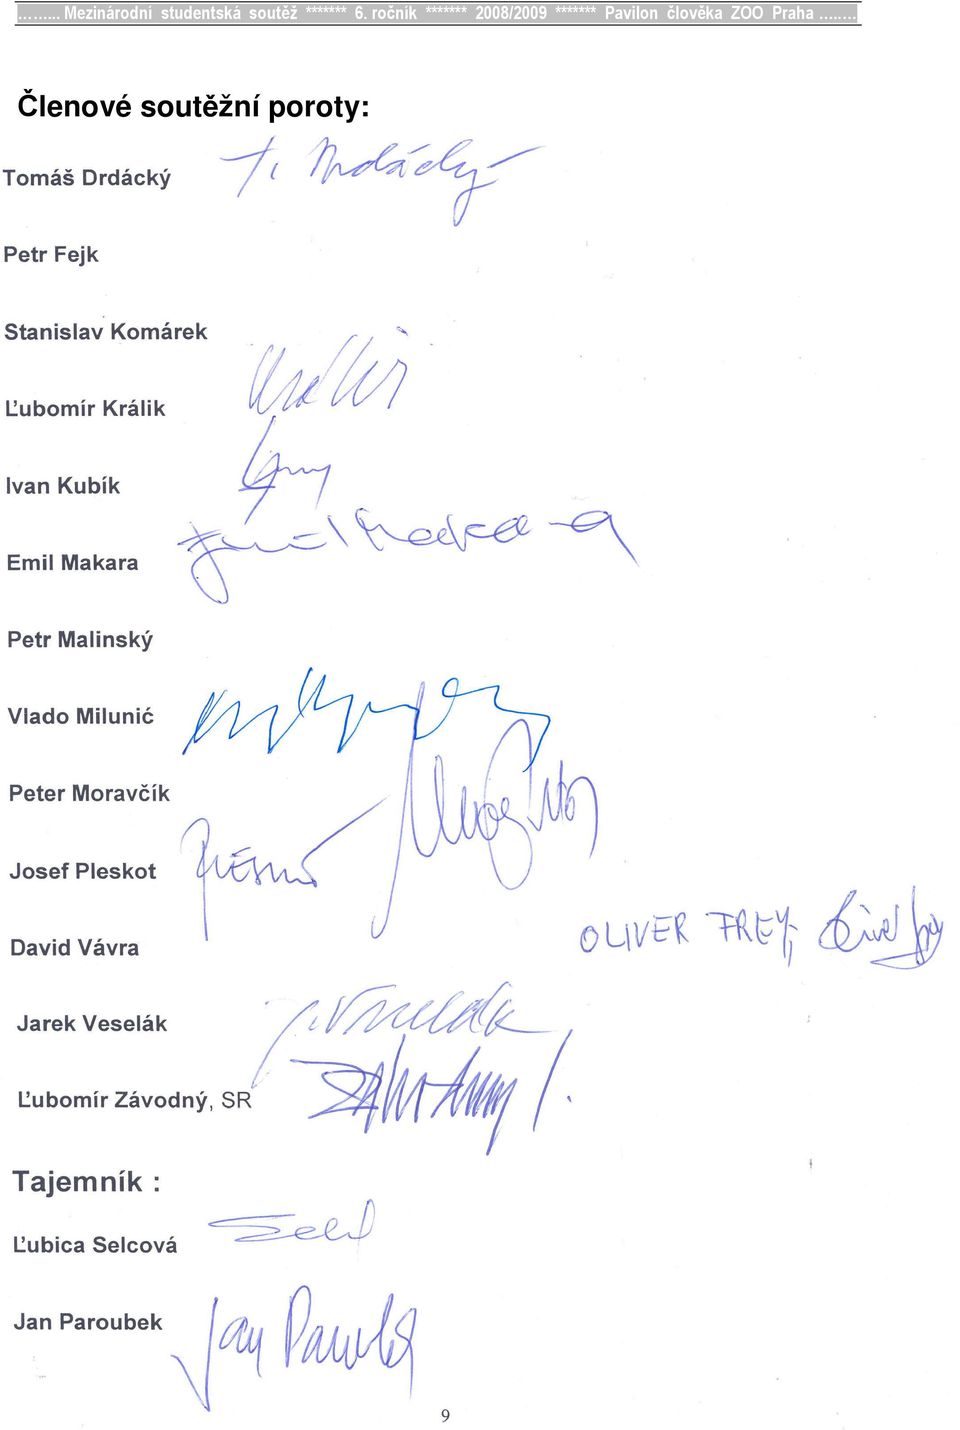 ……... Mezinárodní studentská soutěž ******* 6. ročník ******* 2008/2009 ******* Pavilon člověka ZOO Praha ……
Členové soutěžní poroty:
Tomáš Drdácký T. Drdácký
Petr Fejk
Stanislav Komárek
Ľubomír Králik
Ivan Kubík
Emil Makara Emil Makara
Petr Malinský
Vlado Milunić
Peter Moravčík
Josef Pleskot
David Vávra OLIVER FREY,
Jarek Veselák J. Veselák
Ľubomír Závodný, SR
Tajemník :
Ľubica Selcová
Jan Paroubek Jan Paroubek
9